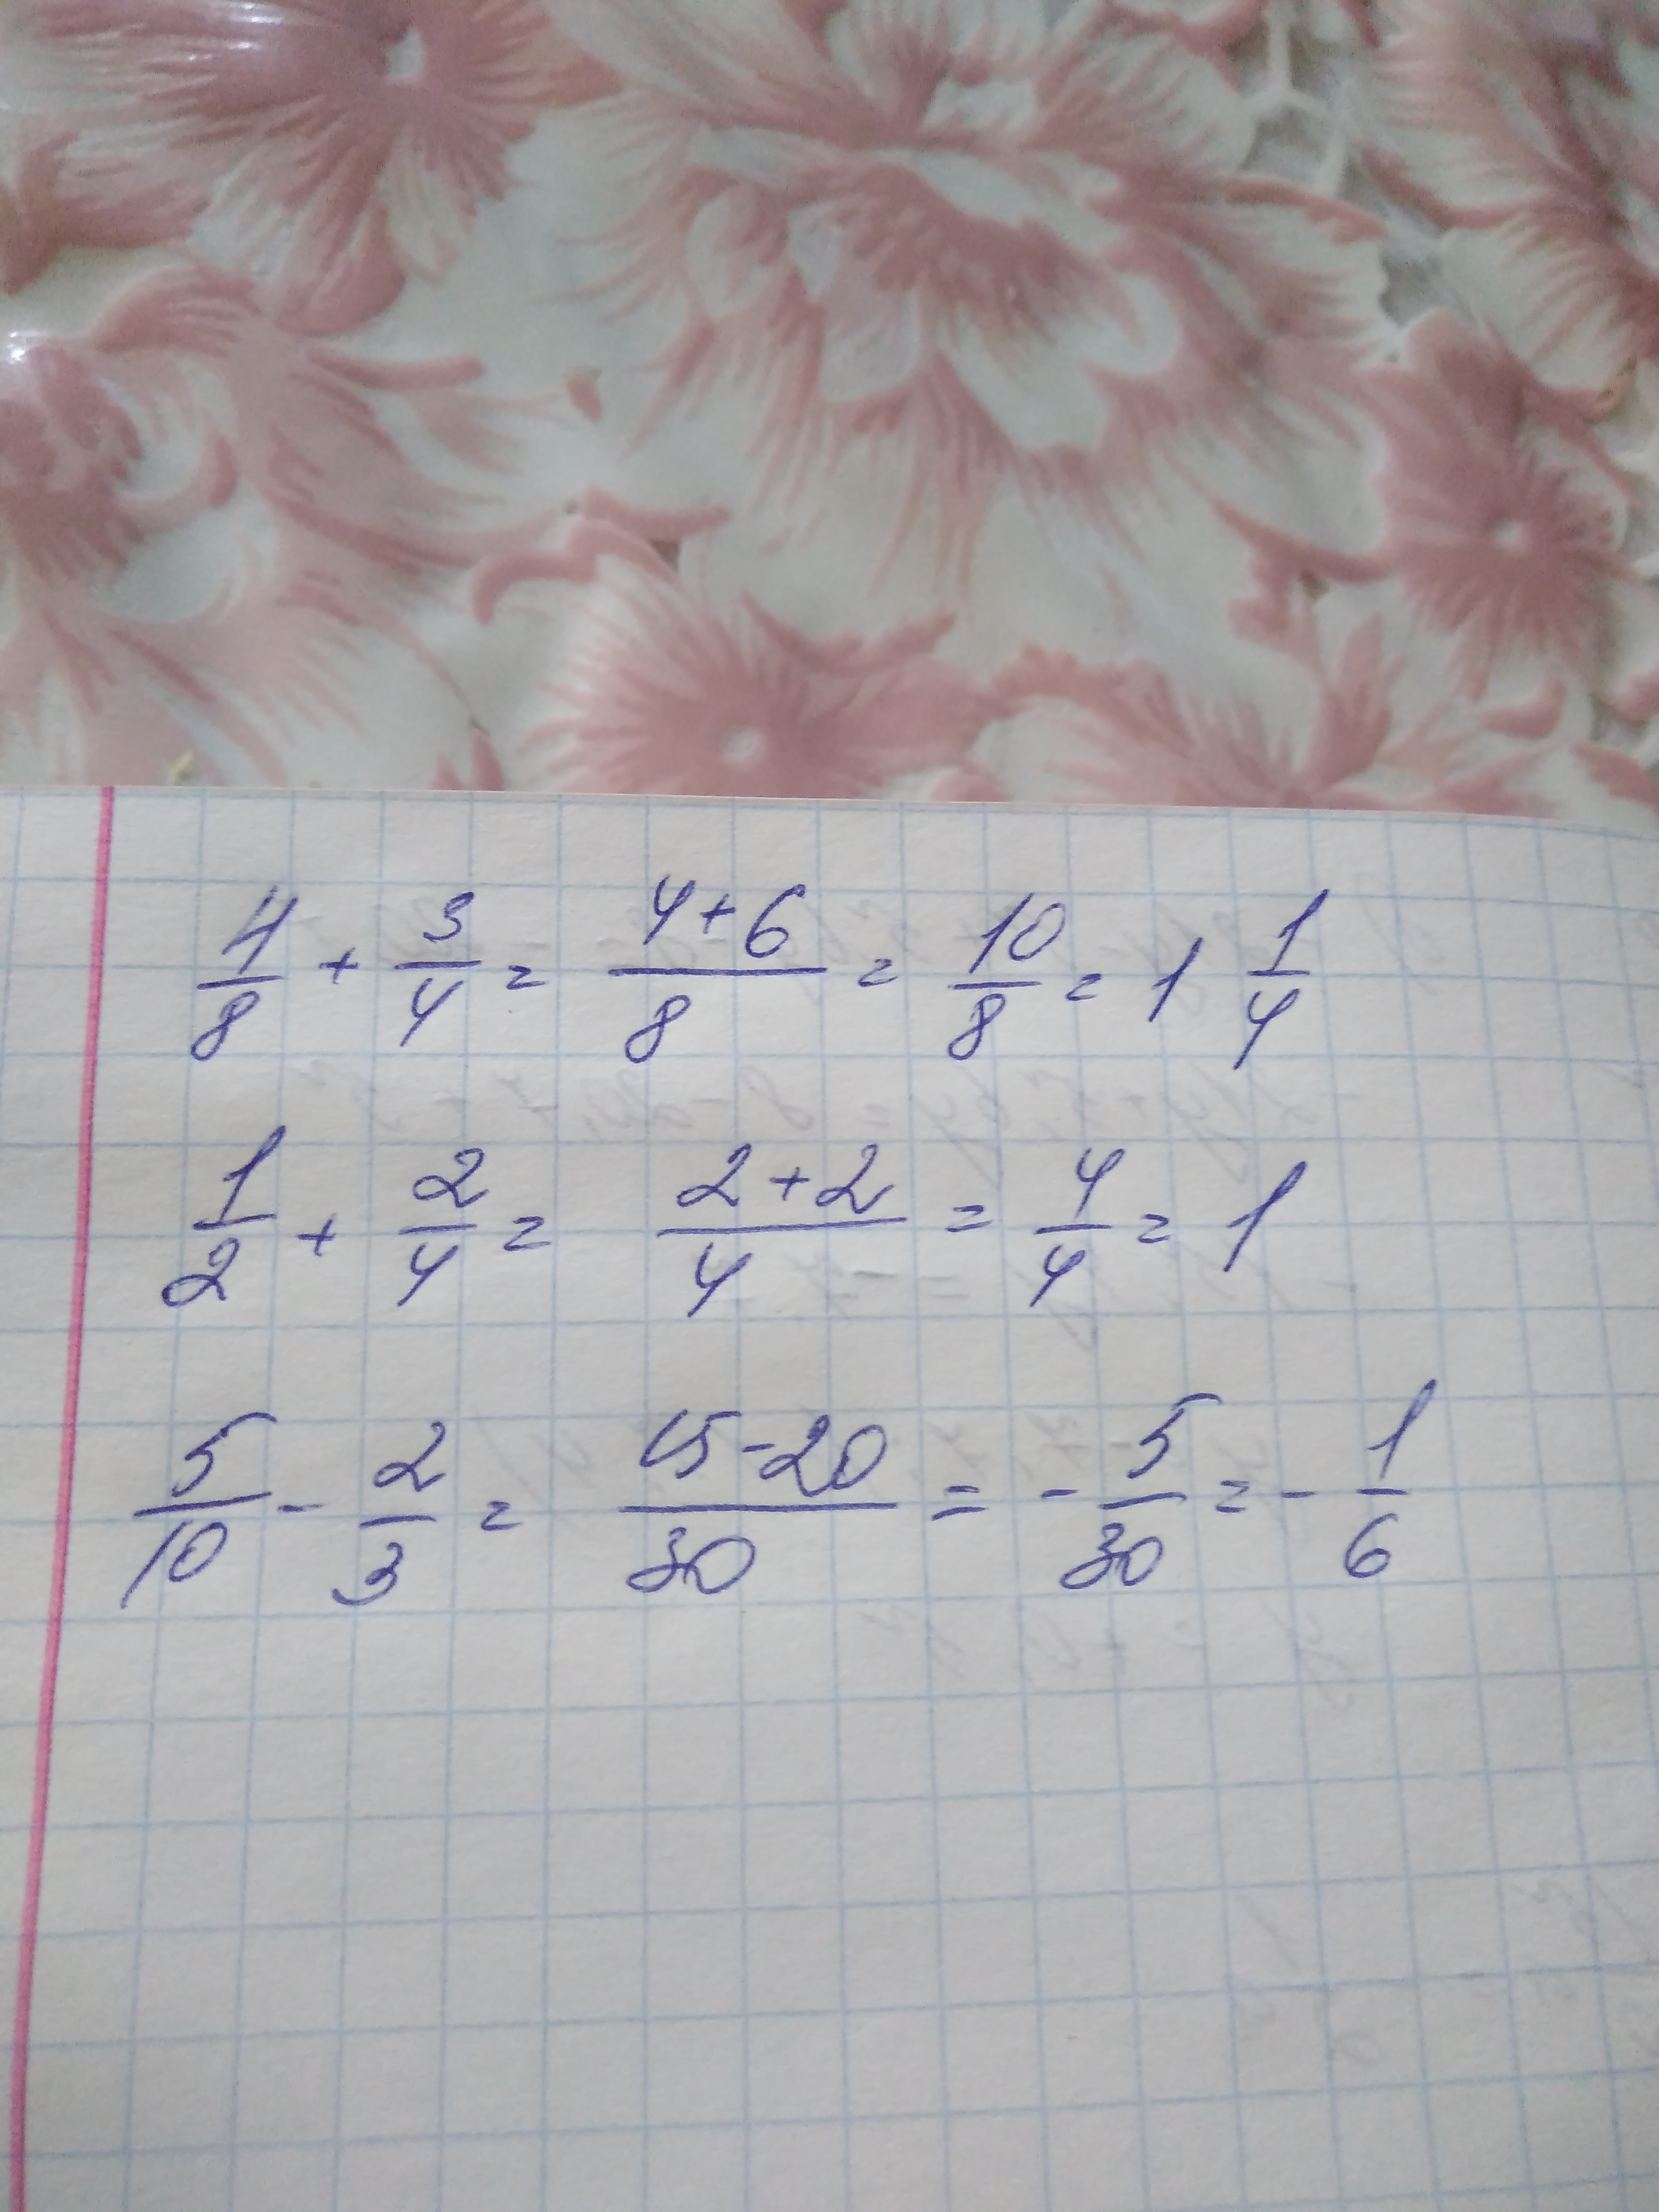 4/8 + 3/4 = (4+6)/8 = 10/8 = 1 1/4
1/2 + 2/4 = (2+2)/4 = 4/4 = 1
5/10 - 2/3 = (15-20)/30 = -5/30 = -1/6